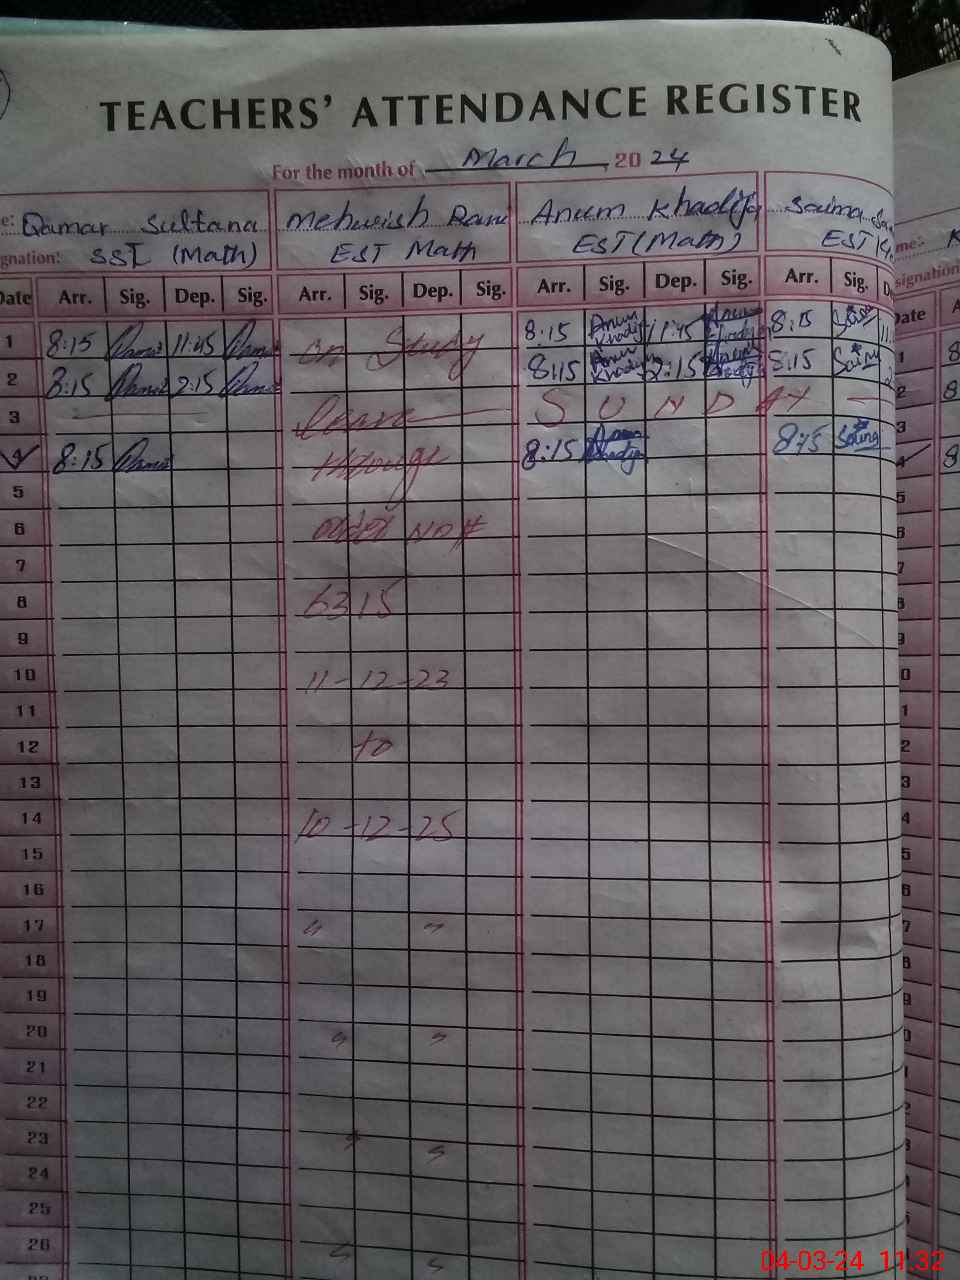 TEACHERS' ATTENDANCE REGISTER
For the month of March, 2024
e: Qamar Sultana Mehwish Rani Anum Khadija Saima
gnation: SST (Math) EST Math EST (Math) EST me:- K
signation
Date Arr. Sig. Dep. Sig. Arr. Sig. Dep. Sig. Arr. Sig. Dep. Sig. Arr. Sig. D Date A
1 8:15 Qamar 11:45 Qamar on Study 8:15 Anum Khadija 11:45 Anum Khadija 8:15 Saima 11: 1 8
2 8:15 Qamar 2:15 Qamar 8:15 Anum Khadija 2:15 Anum Khadija 8:15 Saima 2 2 8
3 leave SUNDAY 3
4 8:15 Qamar through 8:15 Anum Khadija 8:15 Saima 4 8
5 5
6 order NO # 6
7 7
8 6315 8
9 9
10 11-12-23 0
11 1
12 to 2
13 3
14 10-12-25 4
15 5
16 6
17 " " 7
18 8
19 9
20 " " 0
21
22
23 " "
24
25
26 " "
04-03-24 11:32